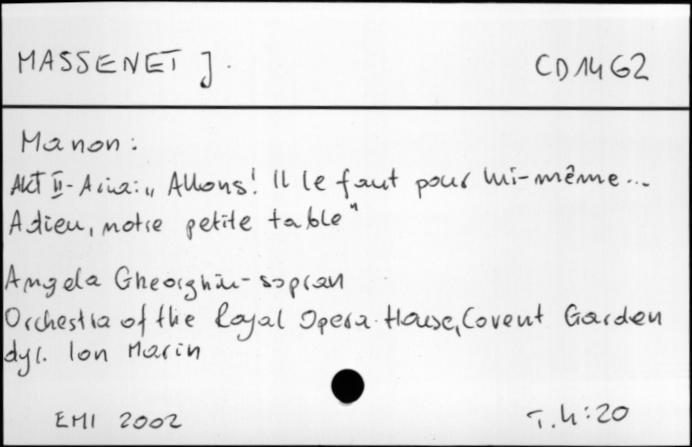 MASSENET J.
CD 1462
Manon:
Akt II - Aria: „Allons! Il le faut pour lui-même...
Adieu, notre petite table"
Angela Gheorghiu - sopran
Orchestra of the Royal Opera House, Covent Garden
dyr. Ion Marin
EMI 2002
T. 4:20